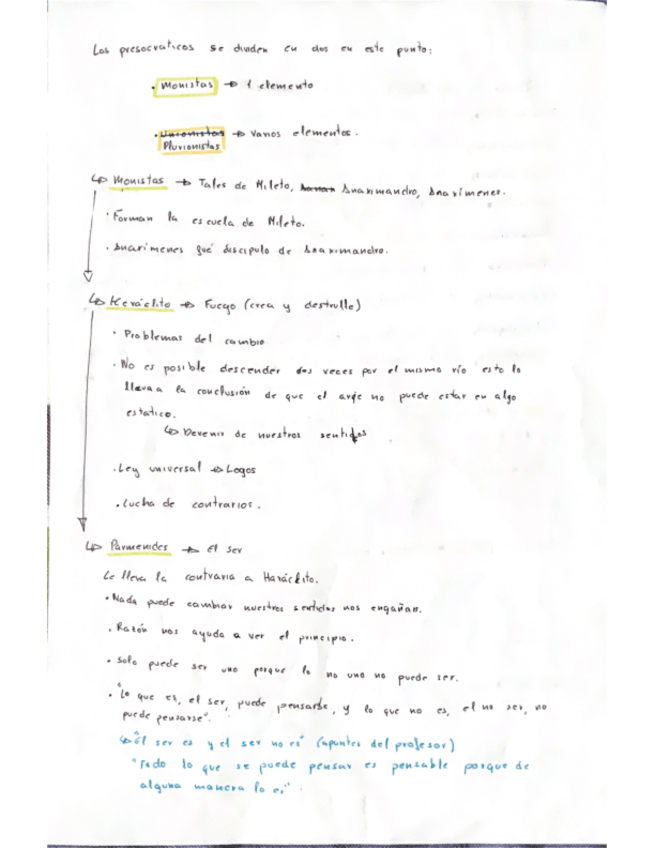 Los presocraticos se dividen en dos en este punto:
· Monistas → 1 elemento
· Unionistas → Varios elementos.
Pluvionistas
↳ Monistas → Tales de Mileto, Anaximandro, Anaxímenes.
· Forman la escuela de Mileto.
· Anaxímenes fué discipulo de Anaximandro.
↳ Heráclito → Fuego (crea y destrulle)
· Problemas del cambio
· No es posible descender dos veces por el mismo río esto lo
lleva a la conclusión de que el arjé no puede estar en algo
estatico.
↳ Devenir de nuestros sentidos
· Ley universal → Logos
· Lucha de contrarios.
↳ Parmenides → el ser
Le lleva la contraria a Heráclito.
· Nada puede cambiar nuestros sentidos nos engañan.
· Razón nos ayuda a ver el principio.
· Solo puede ser uno porque lo no uno no puede ser.
· "Lo que es, el ser, puede pensarse, y lo que no es, el no ser, no
puede pensarse".
↳ "El ser es y el ser no es" (apuntes del profesor)
"Todo lo que se puede pensar es pensable porque de
alguna manera lo es".